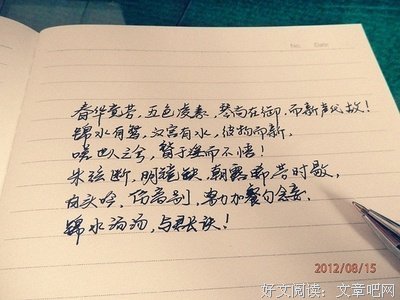 No. Date
春华竞芳,五色凌素,琴尚在御,而新声代故!
锦水有鸳,汉宫有水,彼物而新,
嗟世人之兮,瞀于淫而不悟!
朱弦断,明镜缺,朝露晞,芳时歇,
白头吟,伤离别,努力加餐勿念妾,
锦水汤汤,与君长诀!
2012/08/15
好文阅读:文章吧网